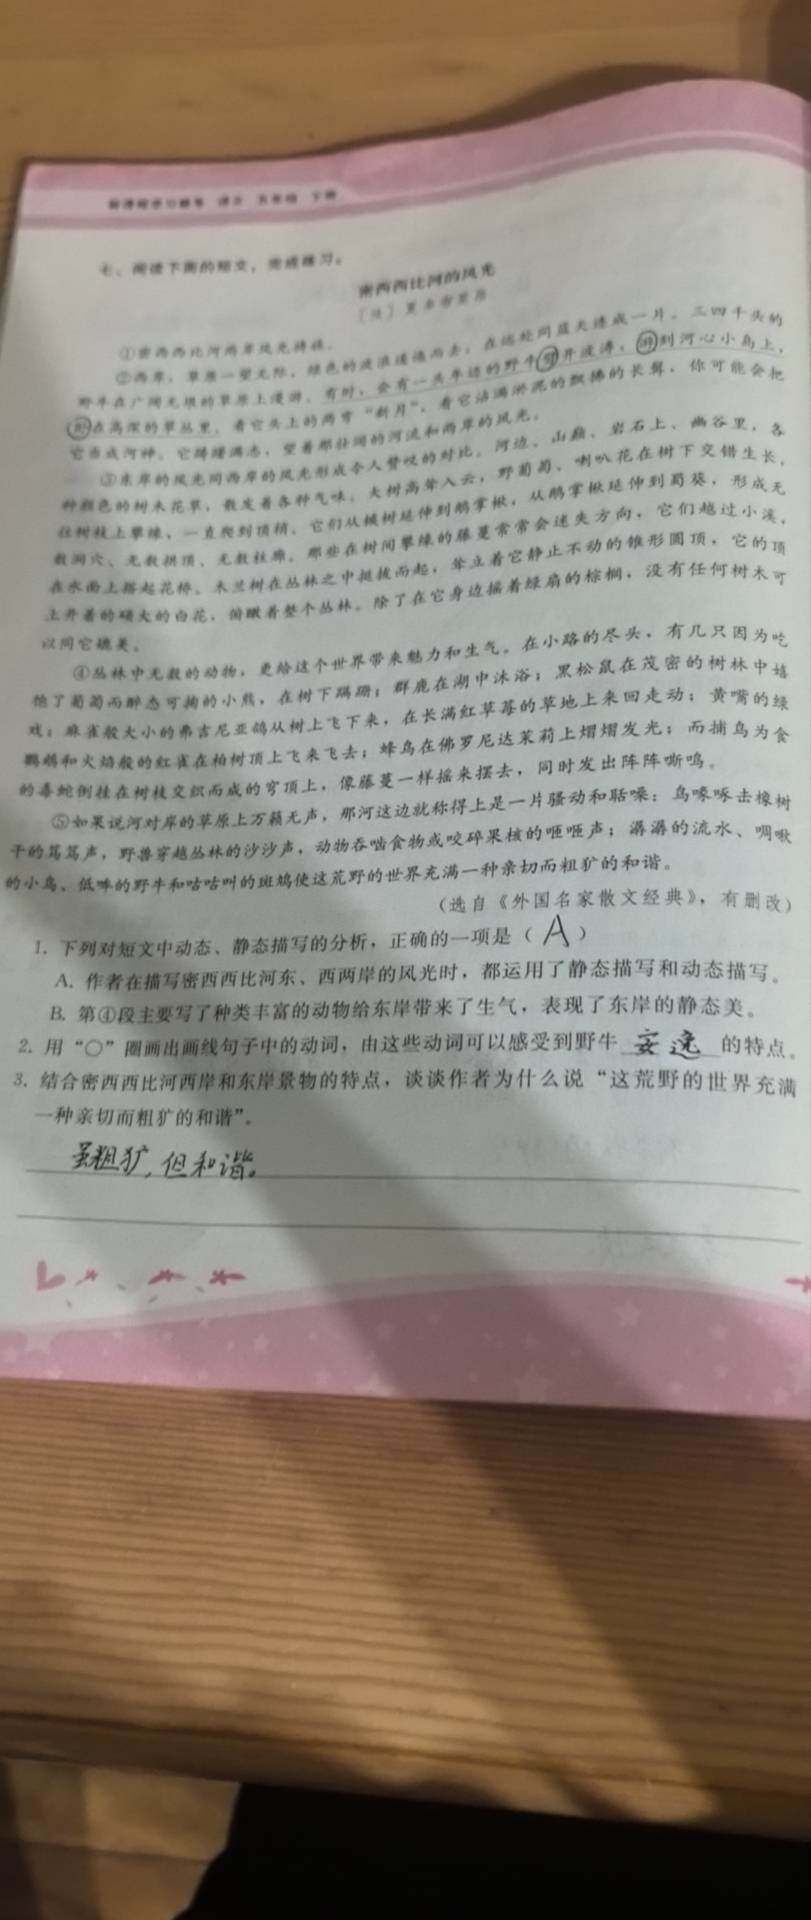 七、阅读下面的短文，完成练习。
密西西比河的风光
〔法〕夏多布里昂
①密西西比河两岸风光绮丽。
②西岸，草原一望无际，绿色的波浪逶迤而去，在远处同蓝天连成一片。三四千头的
野牛在广阔无垠的草原上漫游。有时，会有一头年迈的野牛劈开波涛，游到河心小岛上，
卧在高深的草丛里。看它头上的两弯“新月”，看它沾满淤泥的飘拂的长髯，你可能会把
它当成河神。它踌躇满志，望着那壮阔的河流和两岸的风光。
③东岸的风光同西岸的风光形成令人赞叹的对比。河边、山巅、岩石上、幽谷里，各
种颜色的树木花草，散发着各种气味。大树高耸入云，野葡萄、喇叭花在树下交错生长，
往树枝上攀缘，一直爬到顶梢。它们从槭树延伸到鹅掌楸，从鹅掌楸延伸到蜀葵，形成无
数洞穴、无数拱顶、无数柱廊。那些在树间攀缘的藤蔓常常会迷失方向，它们越过小溪，
在水面上搭起花桥。木兰树在丛林之中挺拔而起，耸立着它静止不动的锥形圆顶，它的顶
上开着的硕大的白花，俯瞰着整个丛林。除了在它身边摇着绿扇的棕榈，没有任何树木可
以同它媲美。
④丛林中无数的动物，更给这个世界带来魅力和生气。在小路的尽头，有几只因为吃
饱了葡萄而醉态可掬的小熊，在树下蹒跚；群鹿在湖中沐浴；黑松鼠在茂密的树林中嬉
戏；麻雀般大小的弗吉尼亚鸽从树上飞下来，在长满红草莓的草地上来回走动；黄嘴的绿
鹦鹉和火焰般的红雀在柏树顶上飞来飞去；蜂鸟在佛罗尼达茉莉上熠熠发光；而捕鸟为食
的毒蛇倒挂在树枝交织而成的穹顶上，像藤蔓一样摇来摆去，同时发出阵阵嘶鸣。
⑤如果说河对岸的草原上万籁无声，那河这边就称得上是一片骚动和聒噪：鸟喙啄击橡树
干的笃笃声，野兽穿越丛林的沙沙声，动物吞啮食物或咬碎果核的咂咂声；潺潺的流水、啁啾
的小鸟、低哞的野牛和咕咕叫的斑鸠使这荒野的世界充满一种亲切而粗犷的和谐。
（选自《外国名家散文经典》，有删改）
1. 下列对短文中动态、静态描写的分析，正确的一项是（ A ）
A. 作者在描写密西西比河东、西两岸的风光时，都运用了静态描写和动态描写。
B. 第④段主要写了种类丰富的动物给东岸带来了生气，表现了东岸的静态美。
2. 用“○”圈画出画线句子中的动词，由这些动词可以感受到野牛 安逸 的特点。
3. 结合密西西比河西岸和东岸景物的特点，谈谈作者为什么说“这荒野的世界充满
一种亲切而粗犷的和谐”。
虽粗犷，但和谐。